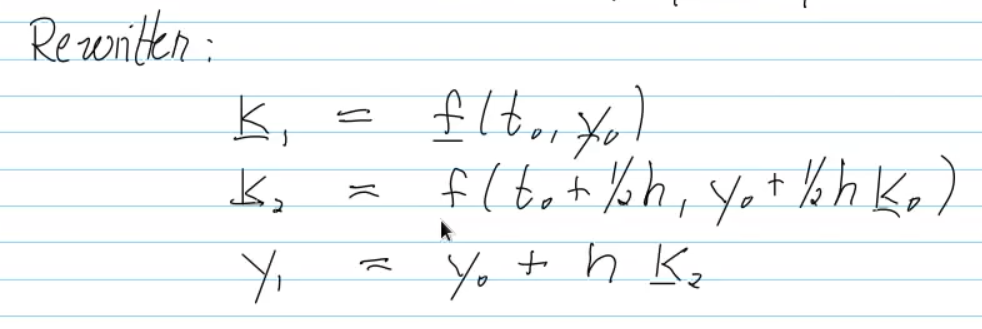 Rewritten:
k₁ = f(t₀, y₀)
k₂ = f(t₀ + ½h, y₀ + ½h k₀)
y₁ = y₀ + h k₂